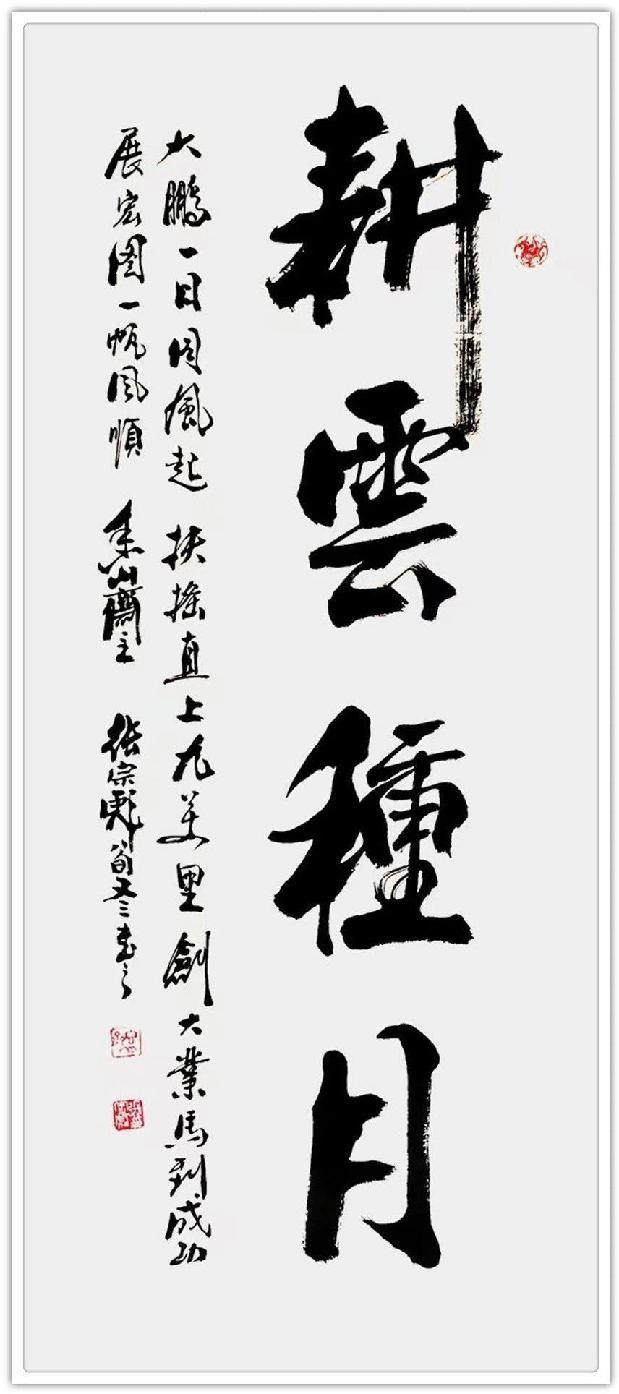 耕雲種月
大鵬一日同風起 扶搖直上九萬里 創大業馬到成功
展宏图一帆风順 山齋主 張宗 冬書之